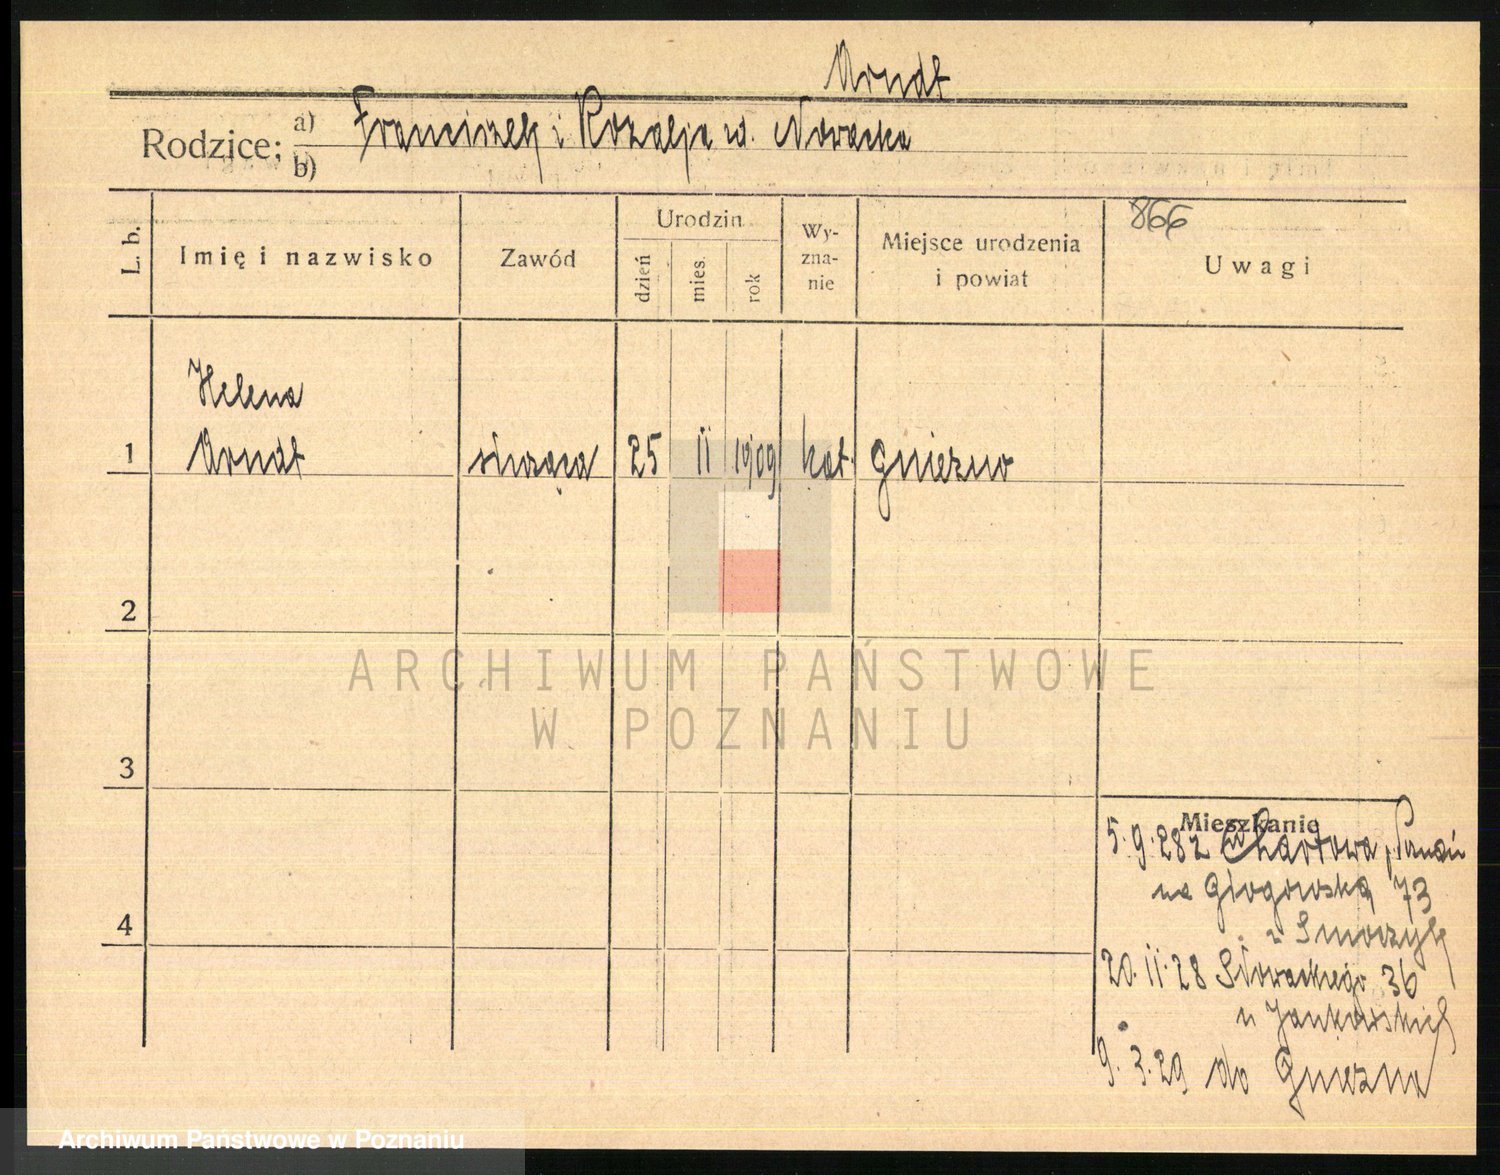 Arndt
Rodzice; a) Franciszek i Rozalja z d. Nowacka
b)
866
L. b.
Imię i nazwisko
Zawód
Urodzin
dzień
mies.
rok
Wy-
zna-
nie
Miejsce urodzenia
i powiat
Uwagi
Helena
1 Arndt służąca 25 II 1909 kat. Gniezno
2
3
4
Mieszkanie
5.9.28 z Chartowa, Poznań
na Głogowską 73
u Smoczyk
20.11.28 Słowackiego 36
u Jankowskich
9.3.29 do Gniezna
ARCHIWUM PAŃSTWOWE
W POZNANIU
Archiwum Państwowe w Poznaniu